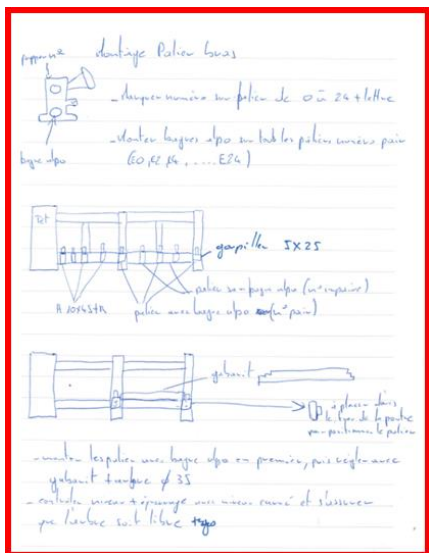 Montage Palier bras
frappe n°
- Marquer numéro sur palier de 0 à 24 + lettre
- Monter bagues alpo sur tout les paliers numéro pair
bague alpo
(E0, E2, E4, .... E24)
Tet
goupilles 5x25
palier sans bague alpo (n° impaire)
palier avec bague alpo (n° pair)
gabarit
à placer dans
le trou de la poutre
pour positionner le palier
- monter les palier avec bague alpo en premier, puis régler avec
gabarit + arbre ϕ 35
- controler niveau + équerrage avec niveau carré et s'assurer
que l'arbre soit libre